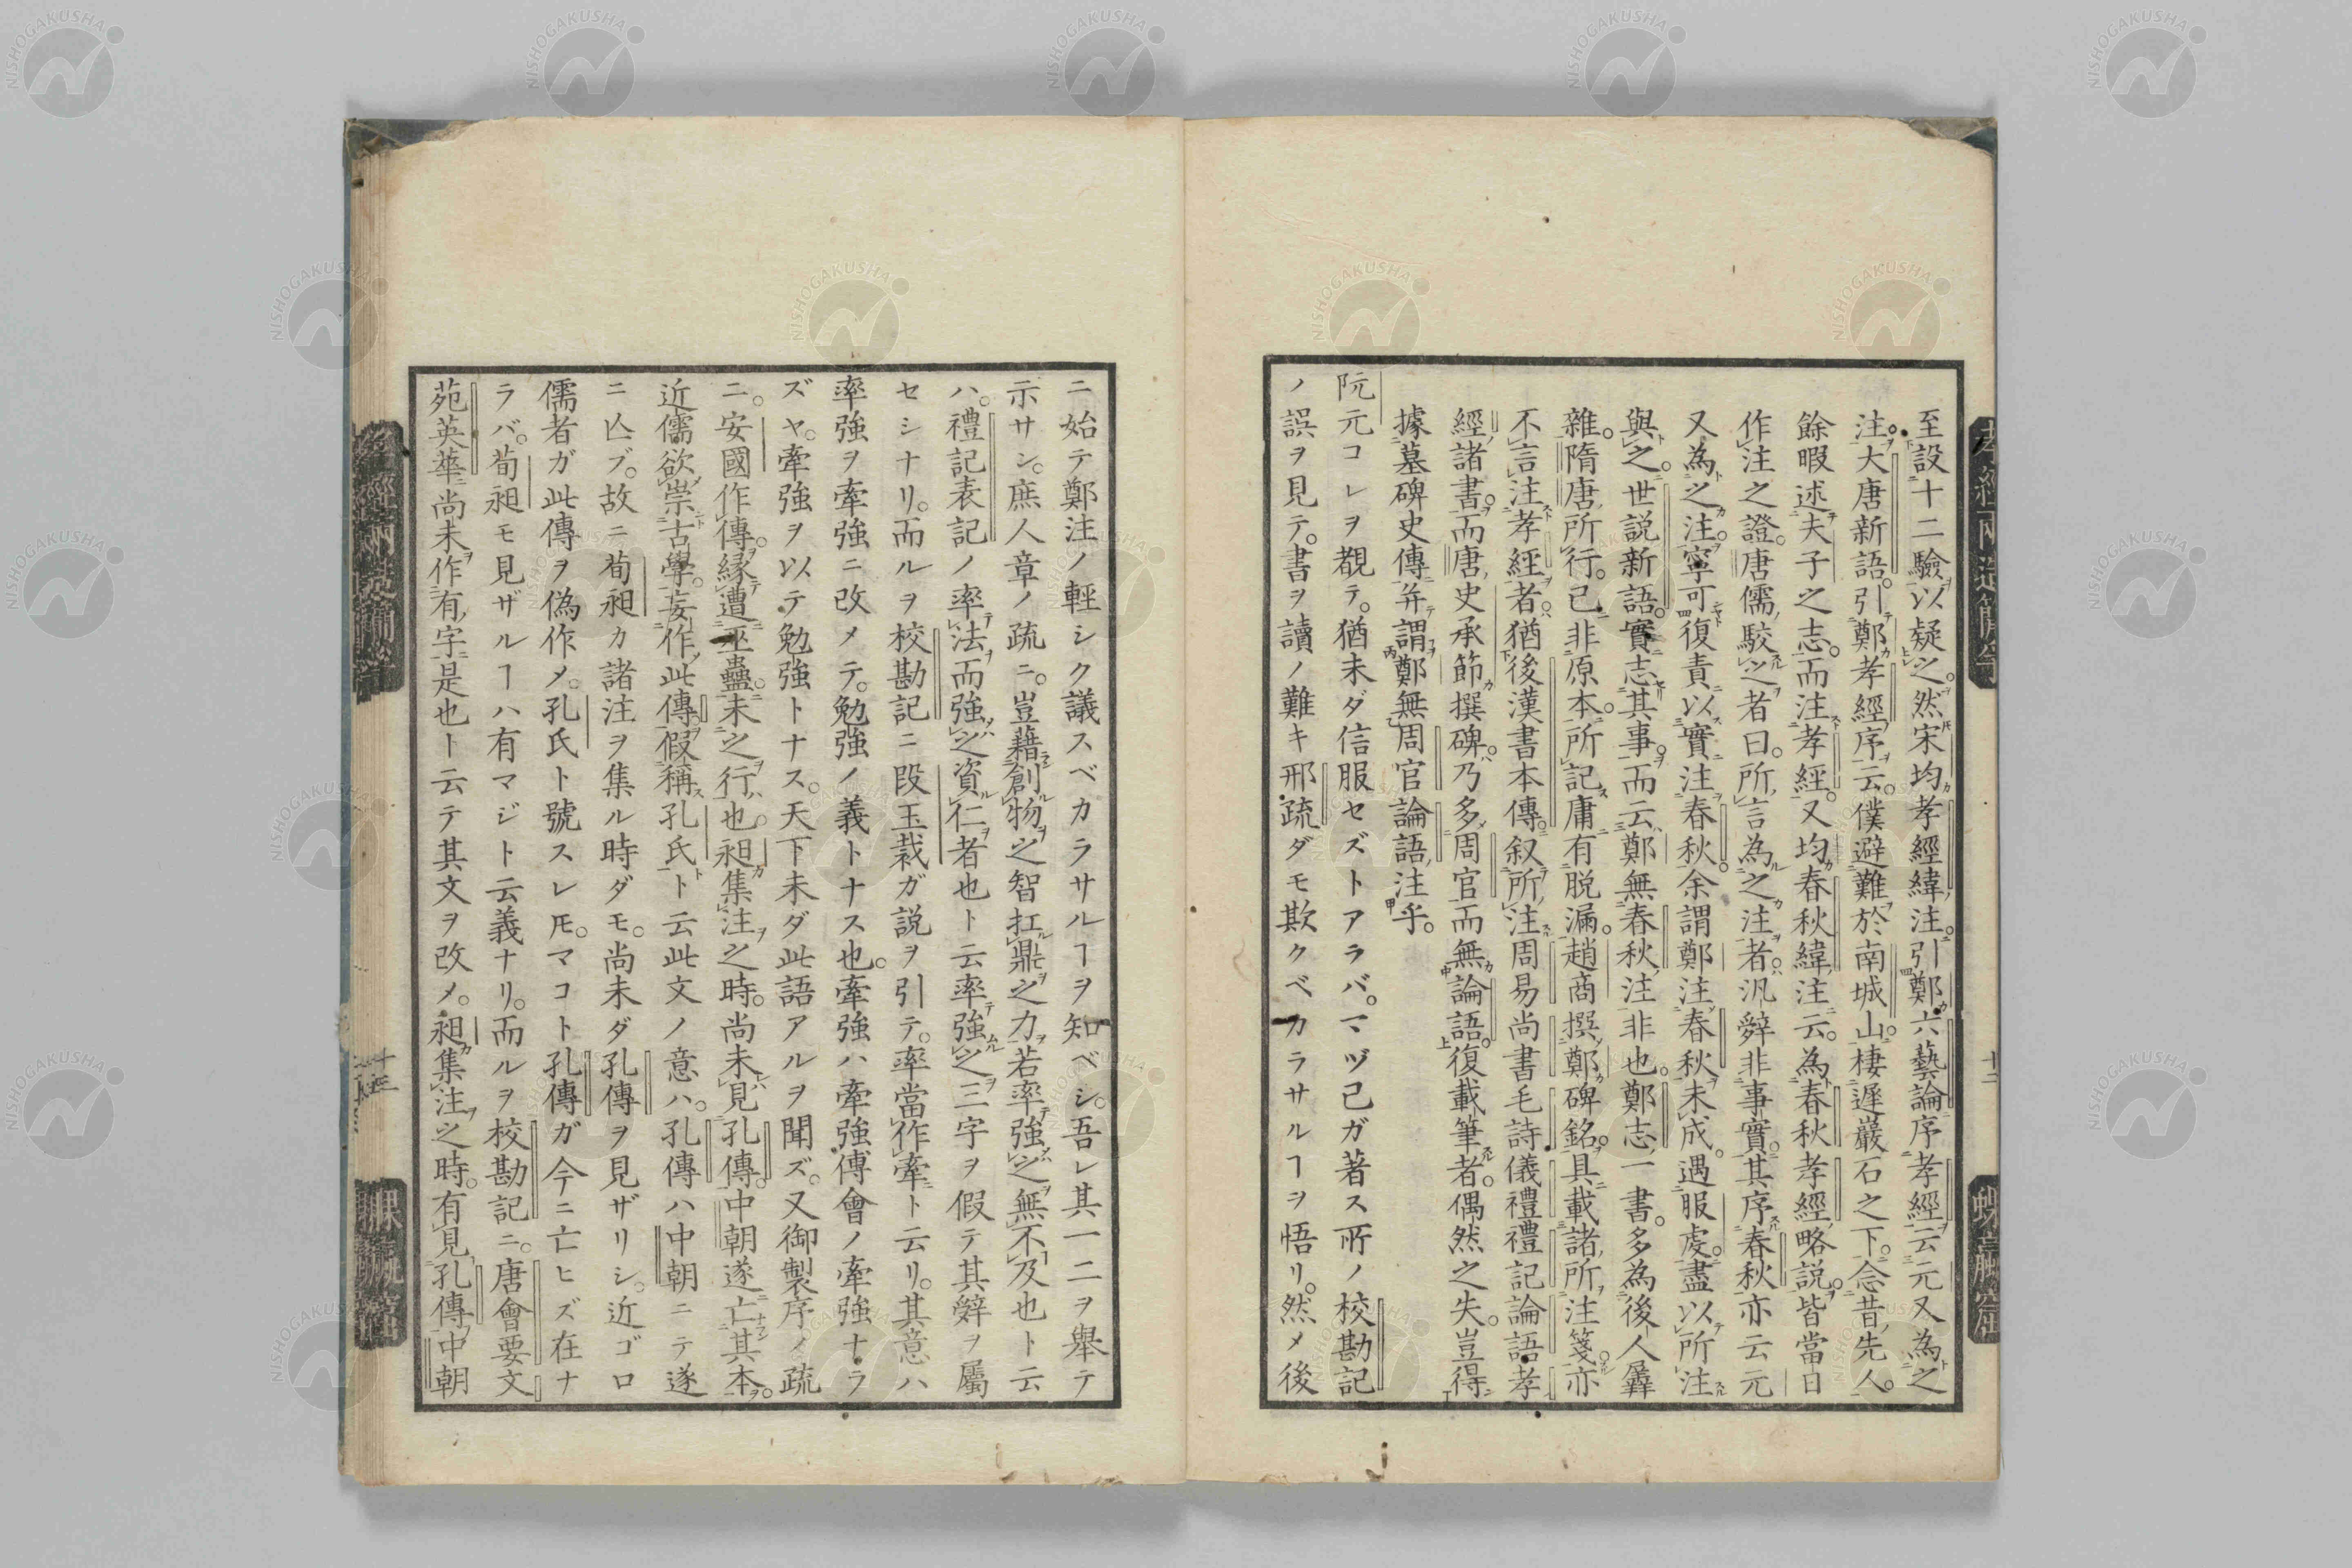 至設十二驗以疑之。然宋均孝經緯注。引鄭六藝論序孝經云元又為之
注。大唐新語。引鄭孝經序云。僕避難於南城山。棲遲巖石之下。念昔先人。
餘暇述夫子之志。而注孝經。又均春秋緯注云。為春秋孝經略説。皆當日
作注之證。唐儒駮之者曰。所言為之注者。汎辤非事實。其序春秋亦云元
又為之注。寧可復責以實注春秋。余謂鄭注春秋未成。遇服虔。盡以所注
與之。世説新語。實志其事。而云鄭無春秋注非也。鄭志一書。多為後人羼
雜。隋唐所行。已非原本。所記庸有脱漏。趙商撰鄭碑銘。具載諸所注箋。亦
不言注孝經者。猶後漢書本傳。叙所注周易尚書毛詩儀禮禮記論語孝
經諸書。而唐史承節撰碑。乃多周官而無論語。復載筆者。偶然之失。豈得
據墓碑史傳并謂鄭無周官論語注乎。
阮元コレヲ覩テ。猶未ダ信服セズトアラバ。マヅ己ガ著ス所ノ校勘記
ノ誤ヲ見テ。書ヲ讀ノ難キ邢疏ダモ欺クベカラサルヿヲ悟リ。然メ後
ニ始テ鄭注ノ輕シク議スベカラサルヿヲ知ベシ。吾レ其一二ヲ舉テ
示サシ。庶人章ノ疏ニ。豈藉創物之智扛鼎之力。若率強之無不及也ト云
ハ。禮記表記ノ率法而強之資仁者也ト云率強之三字ヲ假テ其辤ヲ屬
セシナリ。而ルヲ校勘記ニ段玉裁ガ説ヲ引テ。率當作牽ト云リ。其意ハ
率強ヲ牽強ニ改メテ。勉強ノ義トナス也。牽強ハ牽強傅會ノ牽強ナラ
ズヤ。牽強ヲ以テ勉強トナス。天下未ダ此語アルヲ聞ズ。又御製序ノ疏
ニ。安國作傳。縁遭巫蠱。未之行也。昶集注之時。尚未見孔傳。中朝遂亡其本。
近儒欲崇古學。妄作此傳。假稱孔氏ト云此文ノ意ハ。孔傳ハ中朝ニテ遂
ニ亾ブ。故ニ荀昶カ諸注ヲ集ル時ダモ。尚未ダ孔傳ヲ見ザリシ。近ゴロ
儒者ガ此傳ヲ偽作メ。孔氏ト號スレ𪜈。マコト孔傳ガ今ニ亡ヒズ在ナ
ラバ。荀昶モ見ザルヿハ有マジト云義ナリ。而ルヲ校勘記ニ。唐會要文
苑英華尚未作有字是也ト云テ其文ヲ改メ。昶集注之時。有見孔傳中朝